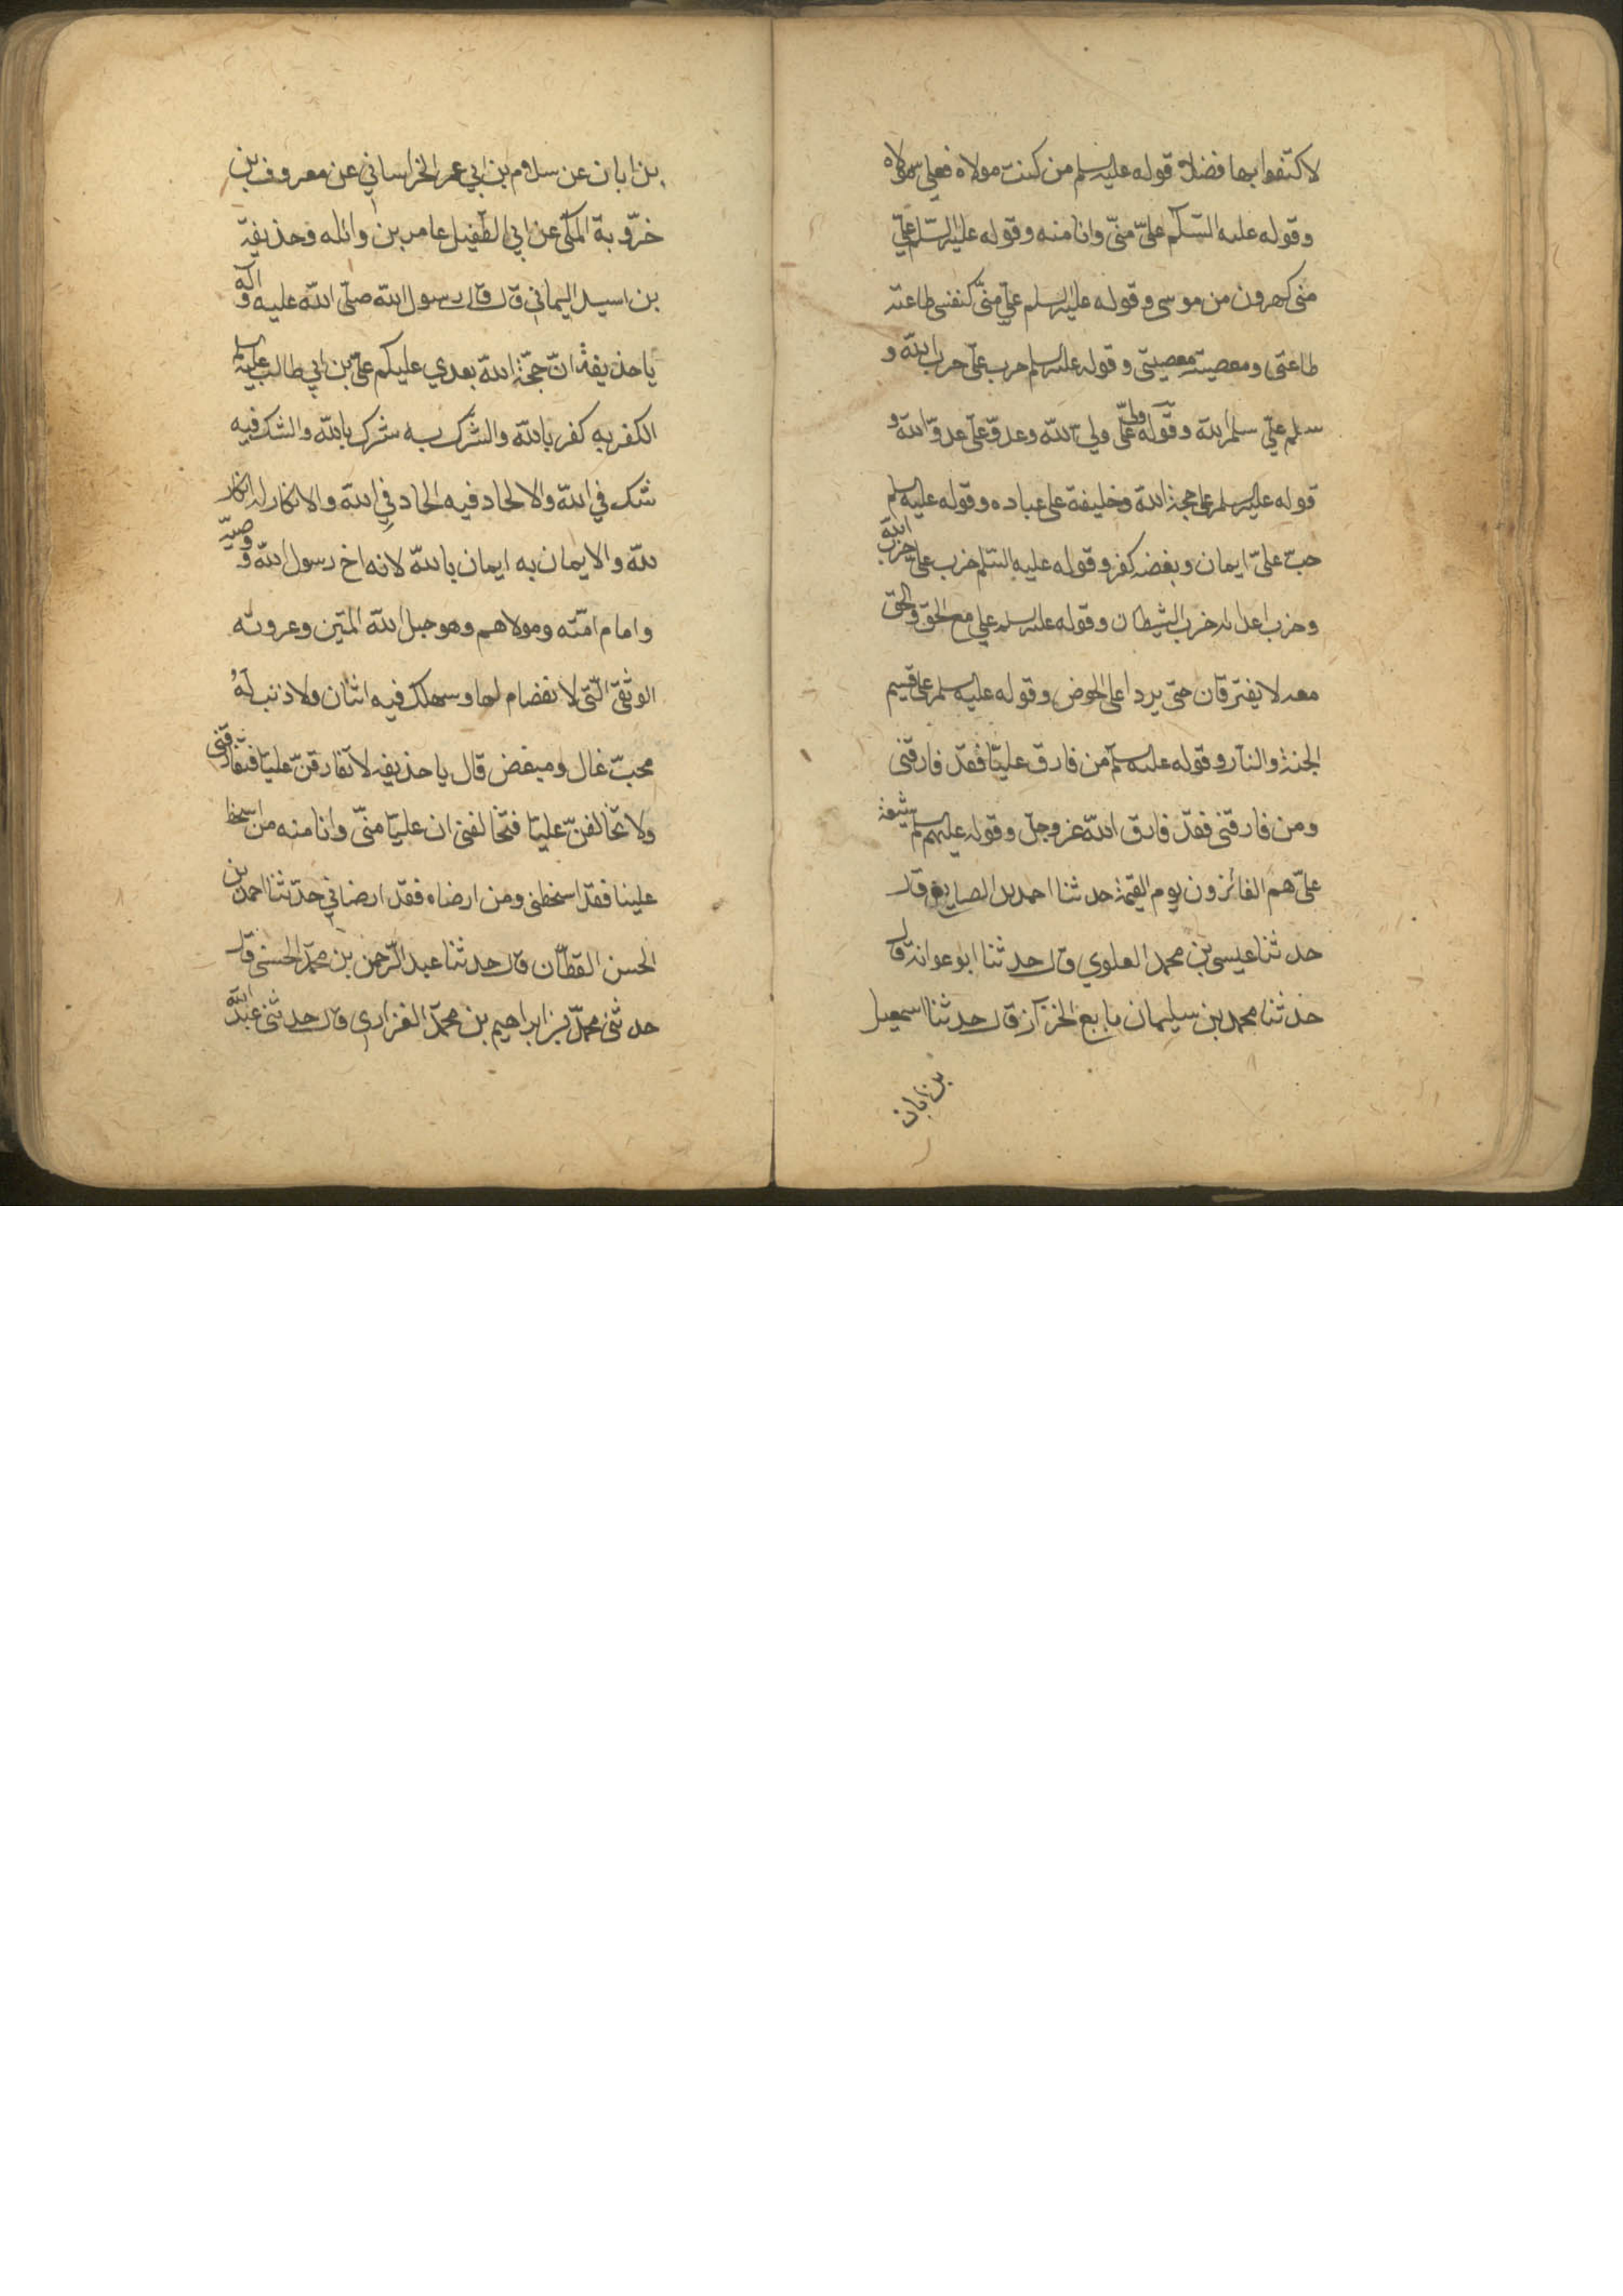 لاكتفوا بها فضلا قوله عليه السلم من كنت مولاه فعلي مولاه
وقوله عليه السّلم عليّ منّي وانا منه وقوله عليه السّلم عليّ
منى كهرون من موسى وقوله عليه السلم عليّ منّي كنفسى طاعته
طاعتى ومعصيته معصيتى وقوله عليه السلم حرب علىّ حرب الله و
سلم عليّ سلم الله وقوله ولىّ علىّ ولىّ الله وعدوّ علىّ عدوّ الله و
قوله عليه السلم على حجة الله وخليفة على عباده وقوله عليه السلم
حبّ علىّ ايمان وبغضه كفر وقوله عليه السّلم حزب على حزب الله
وحزب اعدائه حزب الشيطان وقوله عليه السلم على مع الحق والحق
معه لا يفترقان حتى يردا على الحوض وقوله عليه السلم على قسيم
الجنة والنار وقوله عليه السلم من فارق عليّا فقد فارقنى
ومن فارقنى فقد فارق الله عز وجل وقوله عليه السلم شيعة
علىّ هم الفائزون يوم القيمة حدثنا احمد بن الصايغ قال
حدثنا عيسى بن محمد العلوي قال حدثنا ابو عوانة قال
حدثنا محمد بن سليمان بن بزيع الخزاز قال حدثنا اسمعيل
بن ابان
بن ابان عن سلام بن ابي عمر الخراساني عن معروف بن
خرّوبة المكى عن ابي الطفيل عامر بن واثله وحذيفة
بن اسيد اليماني قال قال رسول الله صلّى الله عليه وآله
يا حذيفة انّ حجّة الله بعدي عليكم علىّ بن ابي طالب عليه السلم
الكفر به كفر بالله والشرك به شرك بالله والشك فيه
شك في الله والالحاد فيه الحاد في الله والانكار له انكار
لله والايمان به ايمان بالله لانه اخ رسول الله ووصيّه
وامام امّته ومولاهم وهو حبل الله المتين وعروته
الوثقى الّتى لا انفصام لها وسيهلك فيه اثنان ولا ذنب له
محبّ غال ومبغض قال يا حذيفه لا تفارقنّ عليّا فتفارقنى
ولا تخالفنّ عليّا فتخالفنى ان عليّا منّي وانا منه من اسخط
علينا فقد اسخطنى ومن ارضاه فقد ارضاني حدّثنا احمد بن
الحسن القطّان قال حدثنا عبد الرّحمن بن محمّد الحسنى قال
حدثنى محمّد بن ابراهيم بن محمّد الفزاري قال حدثنى عبد الله